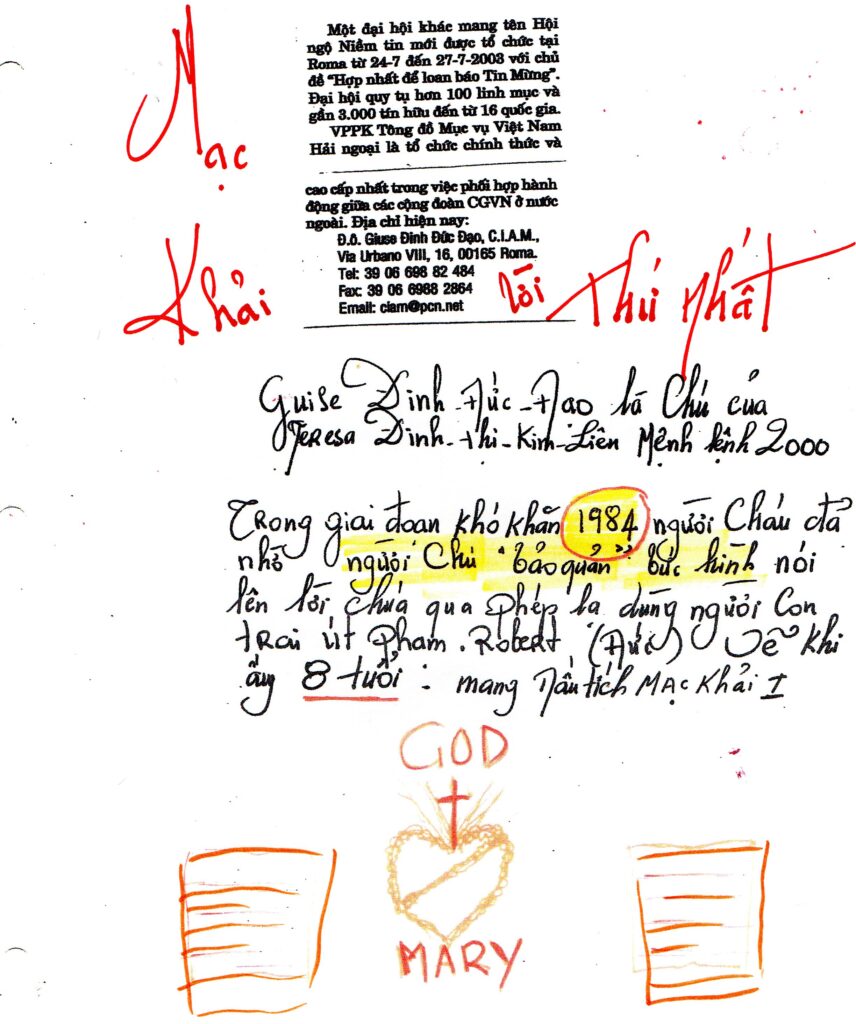 Mạc
Một đại hội khác mang tên Hội
ngộ Niềm tin mới được tổ chức tại
Roma từ 24-7 đến 27-7-2003 với chủ
đề “Hợp nhất để loan báo Tin Mừng”.
Đại hội quy tụ hơn 100 linh mục và
gần 3.000 tín hữu đến từ 16 quốc gia.
VPPK Tông đồ Mục vụ Việt Nam
Hải ngoại là tổ chức chính thức và
cao cấp nhất trong việc phối hợp hành
động giữa các cộng đoàn CGVN ở nước
ngoài. Địa chỉ hiện nay:
Đ.Ô. Giuse Đinh Đức Đạo, C.I.A.M.,
Via Urbano VIII, 16, 00165 Roma.
Tel: 39 06 698 82 484
Fax: 39 06 6988 2864
Email: ciam@pcn.net
Khải lời Thứ Nhất
Guise Đinh-Đức-Đạo là Chú của
Teresa Đinh-thị-Kim-Liên Mệnh lệnh 2000
Trong giai đoạn khó khăn 1984 người Cháu đã
nhờ người Chú "bảo quản" bức hình nói
lên lời chúa qua phép lạ dùng người Con
trai út Phạm. Robert (Đức) Vẽ khi
ấy 8 tuổi: mang Dấu tích MẠC KHẢI I
GOD
MARY